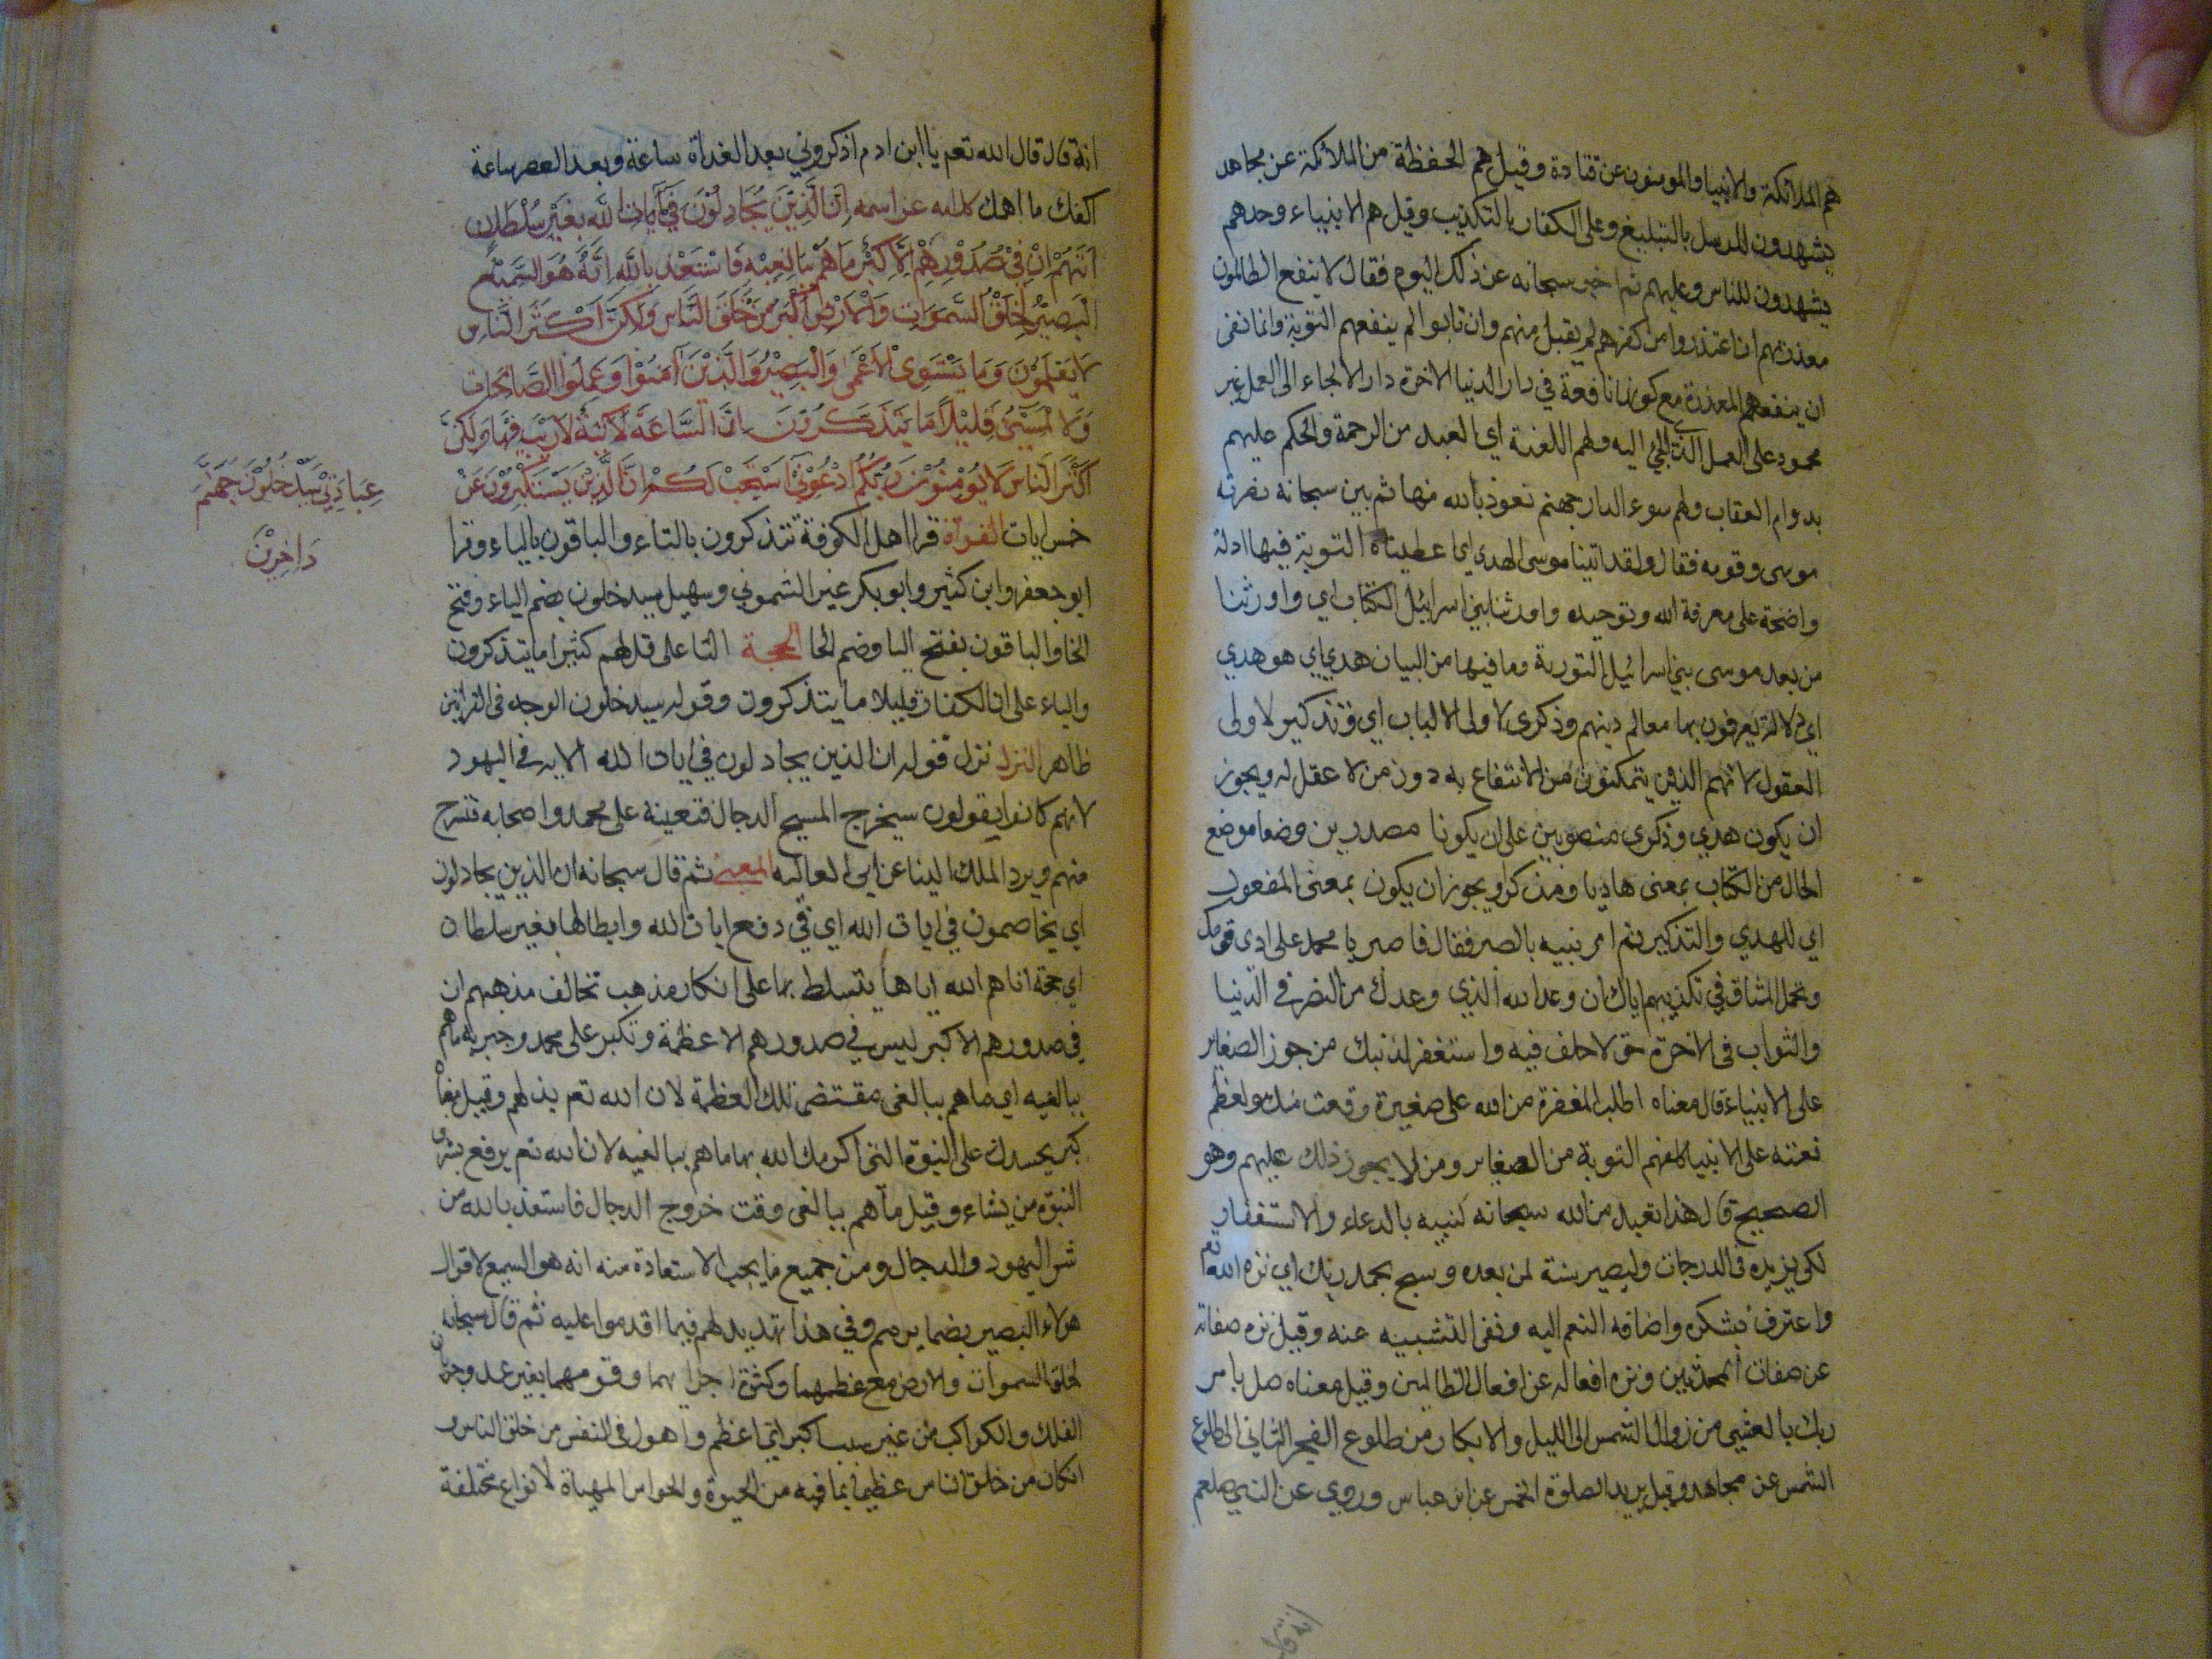 هم الملائكة والانبيا والمومنون عن قتادة وقيل هم الحفظة من الملائكة عن مجاهد
يشهدون للرسل بالتبليغ وعلى الكفار بالتكذيب وقيل هم الانبياء وحدهم
يشهدون للناس وعليهم ثم اخبر سبحانه عن ذلك اليوم فقال لا ينفع الظالمون
معذرتهم ان اعتذروا من كفرهم لم يقبل منهم وان تابوا لم ينفعهم التوبة وانما نفى
ان ينفعهم المعذرة مع كونها نافعة في دار الدنيا الاخرة دار الالجاء الى العمل غير
محمود على العمل الذي الجئ اليه ولهم اللعنة اي العبد من الرحمة والحكم عليهم
بدوام العقاب ولهم سوء الدار جهنم نعوذ بالله منها ثم بين سبحانه نصرته
موسى وقومه فقال ولقد اتينا موسى الهدي اي اعطيناه التورية فيها ادلة
واضحة على معرفة الله وتوحيده واورثنا بني اسرائيل الكتاب اي واورثنا
من بعد موسى بني اسرائيل التورية وما فيها من البيان هدي اي هو هدي
اي دلالة يعرفون بها معالم دينهم وذكرى لاولى الالباب اي وتذكير لاولى
العقول لانهم الذين يتمكنون من الانتفاع به دون من لا عقل له ويجوز
ان يكون هدي وذكرى منصوبين على ان يكونا مصدرين وضعا موضع
الحال من الكتاب بمعنى هاديا ومذكرا ويجوز ان يكون بمعنى المفعول
اي للهدي والتذكير ثم امر نبيه بالصبر فقال فاصبر يا محمد على اذى قومك
وتحمل المشاق في تكذيبهم اياك ان وعد الله الذي وعدك من النصر في الدنيا
والثواب في الاخرة حق لا خلف فيه واستغفر لذنبك من جوز الصغاير
على الانبياء قال معناه اطلب المغفرة من الله على صغيرة وقعت منك ولعظم
نعمته على الانبياء كلفهم التوبة من الصغاير ومن لا يجوز ذلك عليهم وهو
الصحيح قال هذا تعبد من الله سبحانه لنبيه بالدعاء والاستغفار
لكى يزيده في الدرجات وليصير سنة لمن بعده وسبح بحمد ربك اي نزه الله تعم
واعترف بشكره واضافه النعم اليه ونفى التشبيه عنه وقيل نزه صفاته
عن صفات المحدثين ونزه افعاله عن افعال الظالمين وقيل معناه صل بامر
ربك بالعشي من زوال الشمس الى الليل والابكار من طلوع الفجر الثاني الى طلوع
الشمس عن مجاهد وقيل يريد الصلوة الخمس عن ابن عباس وروي عن النبي صلعم
انه قال
انه قال قال الله تعم يا ابن ادم اذكروني بعد الغداة ساعة وبعد العصر ساعة
اكفك ما اهمك قوله عز اسمه اِنَّ الَّذِيْنَ يُجَادِلُوْنَ فِي آيَاتِ اللَّهِ بِغَيْرِ سُلْطَانٍ
اَتَيهُمْ اِنْ فِيْ صُدُوْرِهِمْ اِلَّا كِبْرٌ مَا هُمْ بِبَالِغِيْهِ فَاسْتَعِذْ بِاللَّهِ اِنَّهُ هُوَ السَّمِيْعُ
الْبَصِيْرُ لَخَلْقُ السَّمَوَاتِ وَالْاَرْضِ اَكْبَرُ مِنْ خَلْقِ النَّاسِ وَلَكِنَّ اَكْثَرَ النَّاسِ
لَا يَعْلَمُوْنَ وَمَا يَسْتَوِي الْاَعْمَى وَالْبَصِيْرُ وَالَّذِيْنَ آمَنُوْا وَعَمِلُوا الصَّالِحَاتِ
وَلَا الْمُسِيْئُ قَلِيْلًا مَا يَتَذَكَّرُوْنَ اِنَّ السَّاعَةَ لَاتِيَةٌ لَا رَيْبَ فِيْهَا وَلَكِنَّ
اَكْثَرَ النَّاسِ لَا يُؤْمِنُوْنَ رَبُّكُمُ ادْعُوْنِيْ اَسْتَجِبْ لَكُمْ اِنَّ الَّذِيْنَ يَسْتَكْبِرُوْنَ عَنْ
عِبَادَتِيْ سَيَدْخُلُوْنَ جَهَنَّمَ
دَاخِرِيْنَ
خمس ايات القراة قرا اهل الكوفة تتذكرون بالتاء والباقون بالياء وقرا
ابو جعفر وابن كثير وابو بكر غير الشموني وسهيل سيدخلون بضم الياء وفتح
الخا والباقون بفتح اليا وضم الخا الحجة التا على قل لهم كثيرا ما يتذكرون
والياء على ان الكفار قليلا ما يتذكرون وقوله سيدخلون الوجه في القرائتين
ظاهر النزول نزل قوله ان الذين يجادلون في ايات الله الايه في اليهود
لانهم كانوا يقولون سيخرج المسيح الدجال فنعينه على محمد واصحابه فنستريح
منهم ويرد الملك الينا عن ابي العاليه المعنى ثم قال سبحانه ان الذين يجادلون
اي يخاصمون في ايات الله اي في دفع ايات الله وابطالها بغير سلطان
اي حجة اتاهم الله اياها يتسلط بها على انكار مذهب تخالف مذهبهم ان
في صدورهم الا كبر ليس في صدورهم الا عظمة وتكبر على محمد وجبرية ما هم
ببالغيه اي ما هم ببالغى مقتضى تلك العظمة لان الله تعم يذلهم وقيل معناه
كبر يحسدك على النبوة التي اكرمك الله بها ما هم ببالغيه لان الله تعم يرفع بشرف
النبوة من يشاء وقيل ما هم ببالغى وقت خروج الدجال فاستعذ بالله من
شر اليهود والدجال ومن جميع ما يجب الاستعاذة منه انه هو السميع لاقوال
هولاء البصير بضمايرهم وفي هذا تهديد لهم فيما اقدموا عليه ثم قال سبحانه
لخلق السموات والارض مع عظمهما وكثرة اجزايهما وقومهما بغير عمد وجريان
الفلك والكواكب من غير سبب اكبر اي اعظم واهول في النفس من خلق الناس و
ان كان من خلق الناس عظيما بما فيه من الحيوة والحواس المهياة لانواع مختلفة